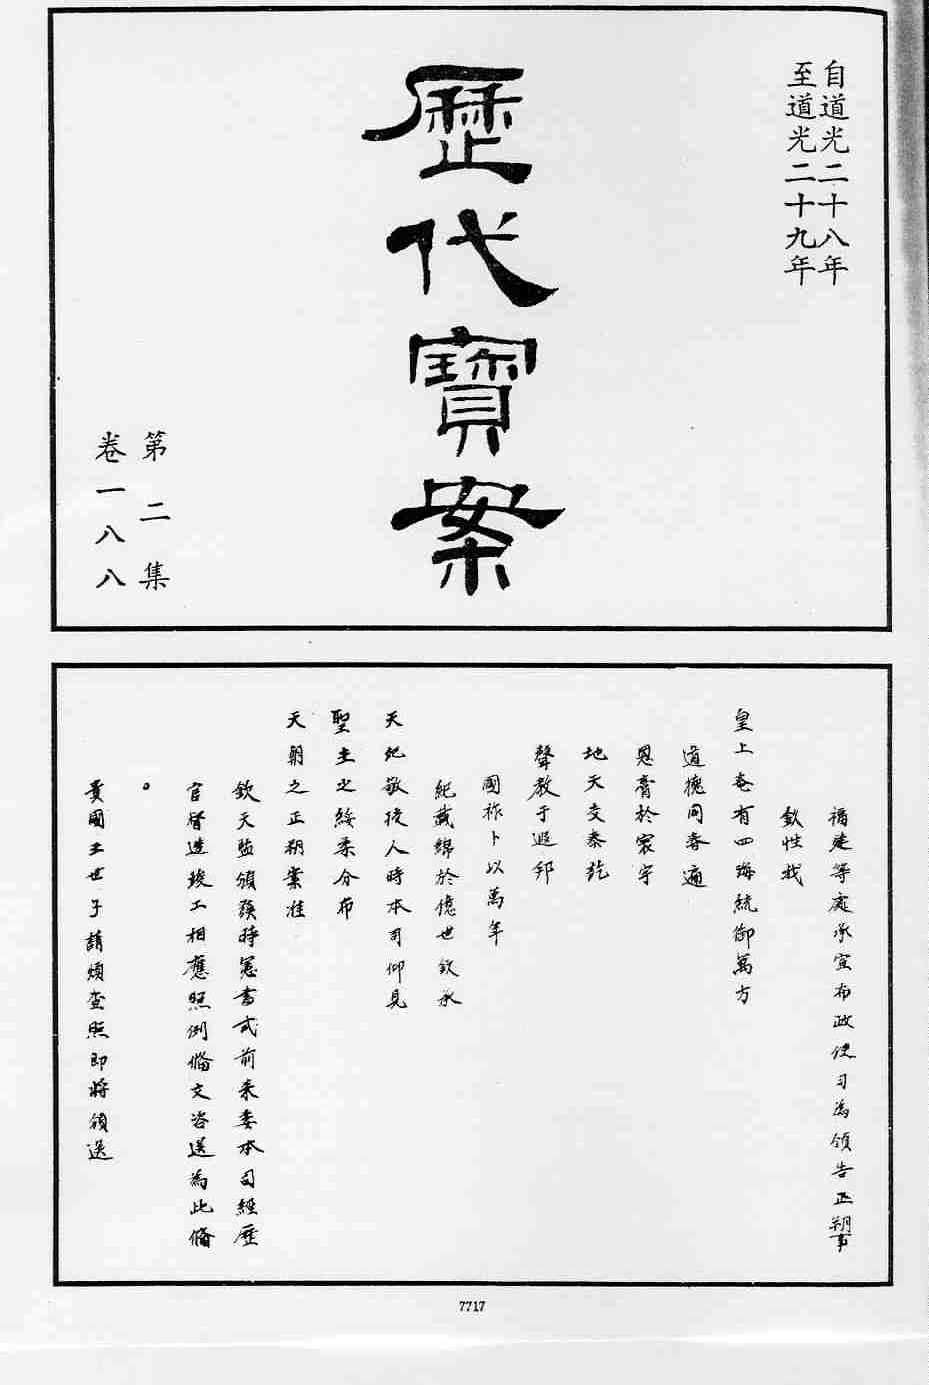 自道光二十八年
至道光二十九年
歷代寶案
第二集
卷一八八
福建等處承宣布政使司為頒告正朔事
欽惟我
皇上奄有四海統御萬方
道揆同春遍
恩膏於寰宇
地天交泰訖
聲教于遐邦
國祚卜以萬年
紀載綿於億世欽承
天紀敬授人時本司仰見
聖主之綏柔分布
天朝之正朔業准
欽天監頒發時憲書式前來委本司經歷
官督造竣工相應照例僃文咨送為此僃
。
貴國王世子請煩查照即將頒送
7717